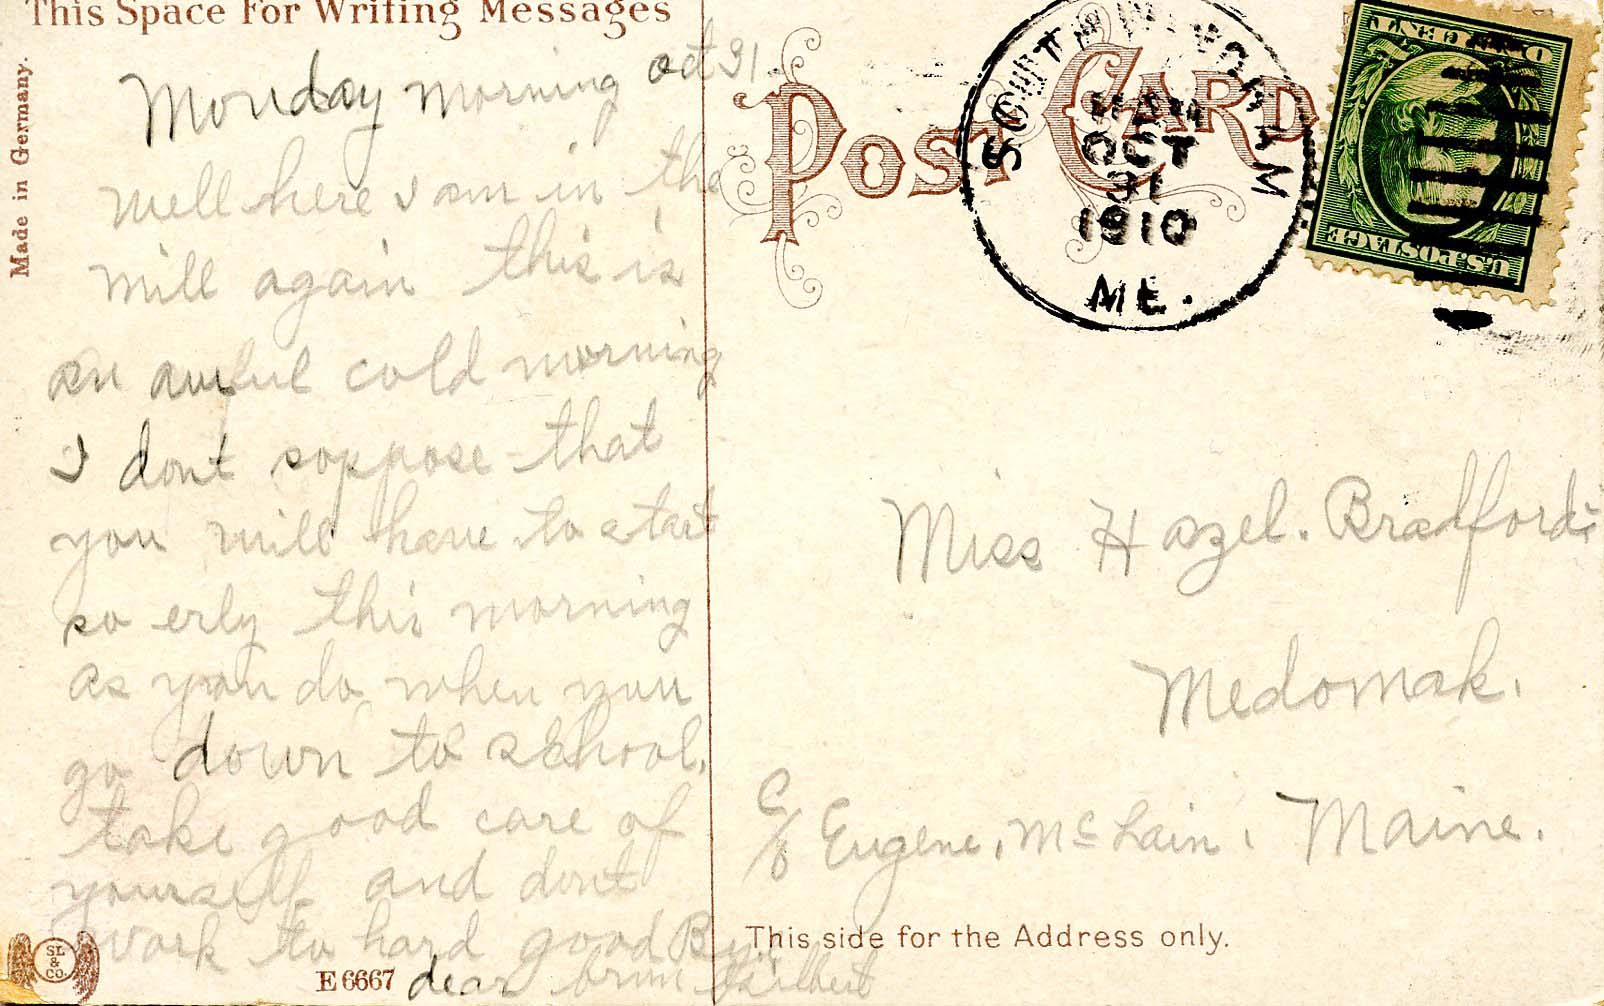 This Space For Writing Messages
Made in Germany.
Monday morning oct 31
well here I am in the
mill again this is
an awful cold morning
I dont soppose that
you will have to start
so erly this morning
as you do when you
go down to school.
take good care of
yourself and dont
work to hard good Bye
dear from Gilbert
SL & CO.
E 6667
POST CARD
SOUTH WINDHAM
OCT
31
1910
ME.
U.S. POSTAGE
Miss Hazel. Bradford
Medomak.
C/o Eugene, McLain, Maine.
This side for the Address only.